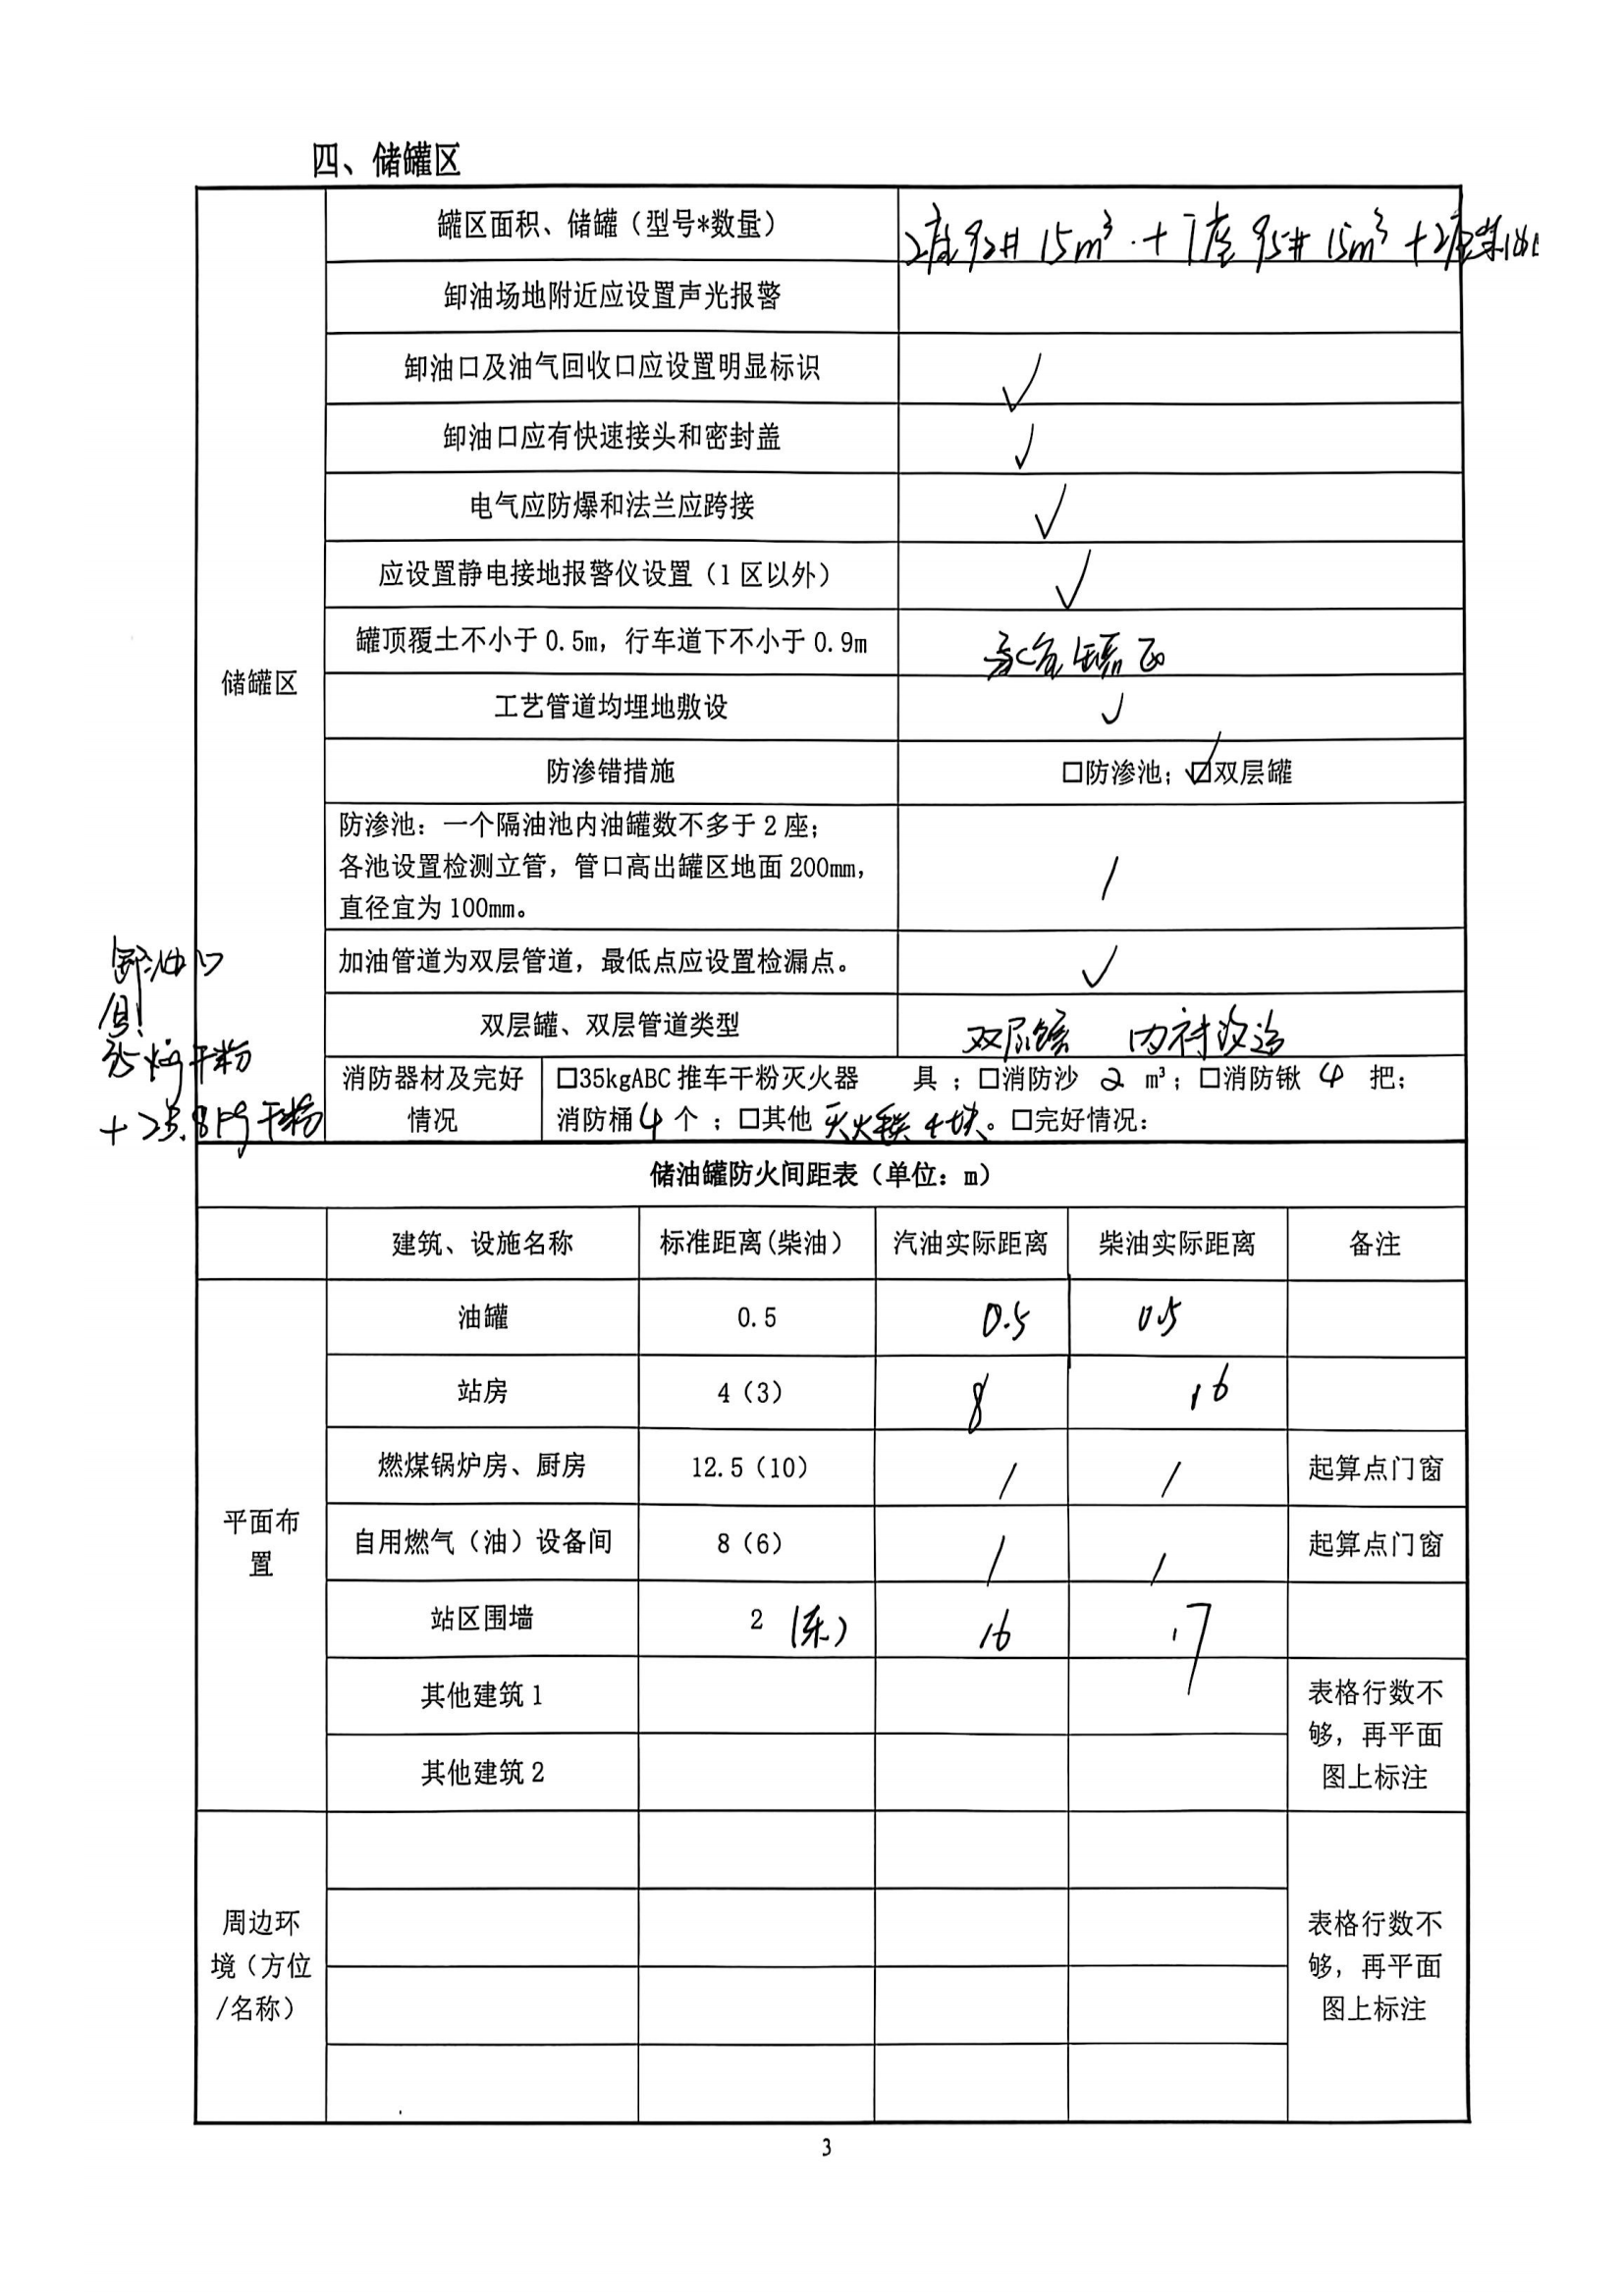 四、储罐区
储罐区
罐区面积、储罐（型号*数量）
2座92# 15m³ + 1座95# 15m³ + 2座柴
卸油场地附近应设置声光报警
卸油口及油气回收口应设置明显标识 ✓
卸油口应有快速接头和密封盖 ✓
电气应防爆和法兰应跨接 ✓
应设置静电接地报警仪设置（1 区以外） ✓
罐顶覆土不小于 0.5m，行车道下不小于 0.9m
罐区
工艺管道均埋地敷设 ✓
防渗错措施 □防渗池；☑双层罐
防渗池：一个隔油池内油罐数不多于 2 座；
各池设置检测立管，管口高出罐区地面 200mm，
直径宜为 100mm。 /
加油管道为双层管道，最低点应设置检漏点。 ✓
双层罐、双层管道类型 双层罐 内衬改造
卸油口
旦!
35kg干粉
+2具8kg干粉
消防器材及完好
情况
□35kgABC 推车干粉灭火器 具；□消防沙 2 m³；□消防锹 4 把；
消防桶 4 个 ；□其他 灭火毯 4块。□完好情况：
储油罐防火间距表（单位：m）
建筑、设施名称 标准距离(柴油） 汽油实际距离 柴油实际距离 备注
平面布
置
油罐 0.5 0.5 0.5
站房 4（3） 8 16
燃煤锅炉房、厨房 12.5（10） / / 起算点门窗
自用燃气（油）设备间 8（6） / / 起算点门窗
站区围墙 2 (东) 16 17
其他建筑 1
其他建筑 2
表格行数不
够，再平面
图上标注
周边环
境（方位
/名称）
表格行数不
够，再平面
图上标注
3